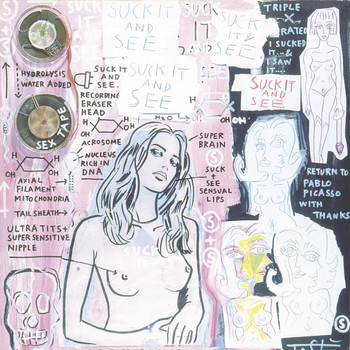 SUCK IT
AND
SEE
SUCK
IT &
SEE
TRIPLE
X
RATED
I SUCKED
IT....&
I SAW
IT....
HYDROLYSIS
WATER ADDED
SUCK IT
AND
SEE.
RECORDING
ERASER
HEAD
SUCK IT
AND
SEE
SUCK IT
AND
SEE
SEX TAPE
H
OH
OH
H
H₂O
H
OH
OH
H
ACROSOME
NUCLEUS
RICH IN
DNA
SUPER
BRAIN
SUCK
+
SEE
SENSUAL
LIPS
AXIAL
FILAMENT
MITOCHONDRIA
TAIL SHEATH
ULTRA TITS +
SUPER SENSITIVE
NIPPLE
RETURN TO
PABLO
PICASSO
WITH
THANKS
S+S
SUCK IT
AND
S
S